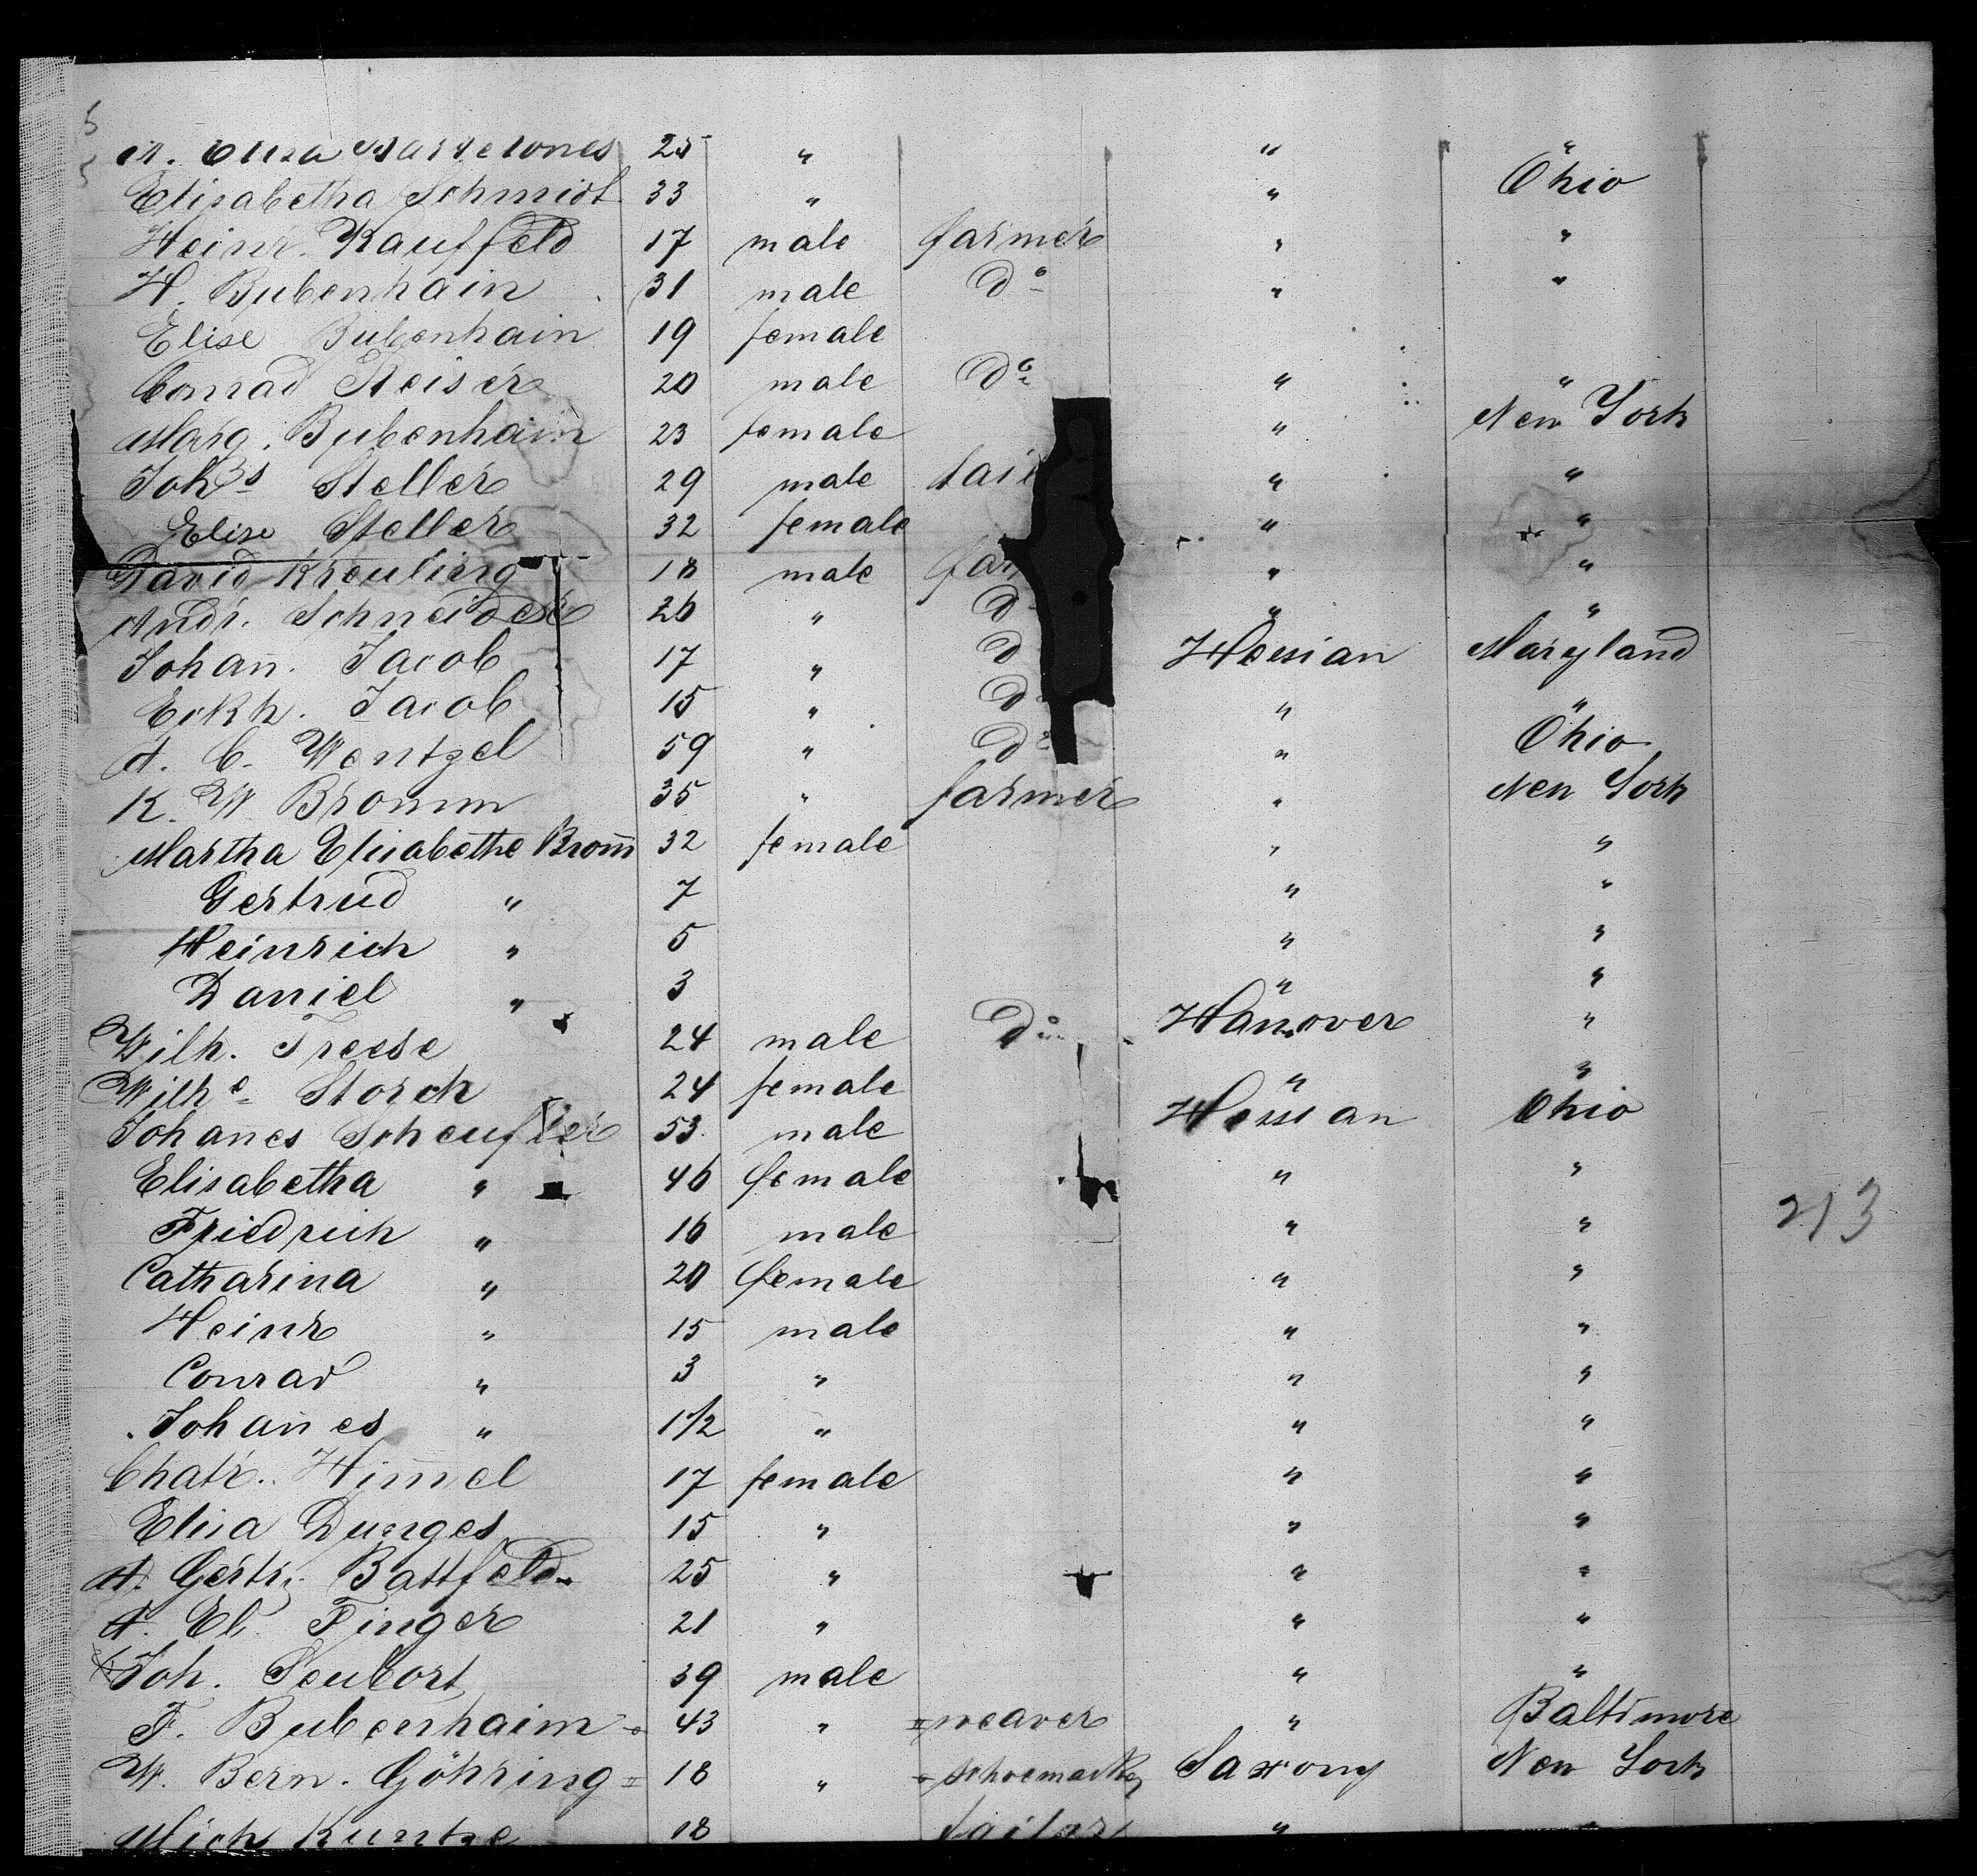 A. Elisa 25 " " "
Elisabetha Schmidt 33 " " Ohio
Heinr. Kauffeld 17 male farmer " "
H. Bubenhain 31 male do " "
Elise Bubenhain 19 female
Conrad Reiser 20 male do " "
Marg. Bubenhain 23 female " New York
Johs Steller 29 male tail " "
Elise Steller 32 female " "
David Kreuling 18 male far " "
Andr. Schneider 26 " d " "
Johan̄. Jacob 17 " d Hessian Maryland
Eckh. Jacob 15 " d " "
A. C. Wentzel 59 " do " Ohio
K. W Bromm 35 " farmer " New York
Martha Elisabethe Brom̄ 32 female " "
Gertrud " 7 " "
Heinrich " 5 " "
Daniel " 3 " "
Wilh. Treese 24 male do Hanover "
Wilhe Storck 24 female " "
Johanes Scheufler 53 male Hessian Ohio
Elisabetha " 46 female " "
Friedrich " 16 male " "
Catharina " 20 female " "
Heinr " 15 male " "
Conrad " 3 " " "
Johan̄es " 1 1/2 " " "
Chatr. Him̄el 17 female " "
Elisa Dunges 15 " " "
A. Gertr. Battfeld 25 " " "
A. El. Finger 21 " " "
Joh. Seubert 39 male " "
213
F. Bubenhaim 43 " weaver " Baltimore
W. Bern. Göhring 18 " schoemacker Saxony New York
Mich Kuntze 18 tailor " "